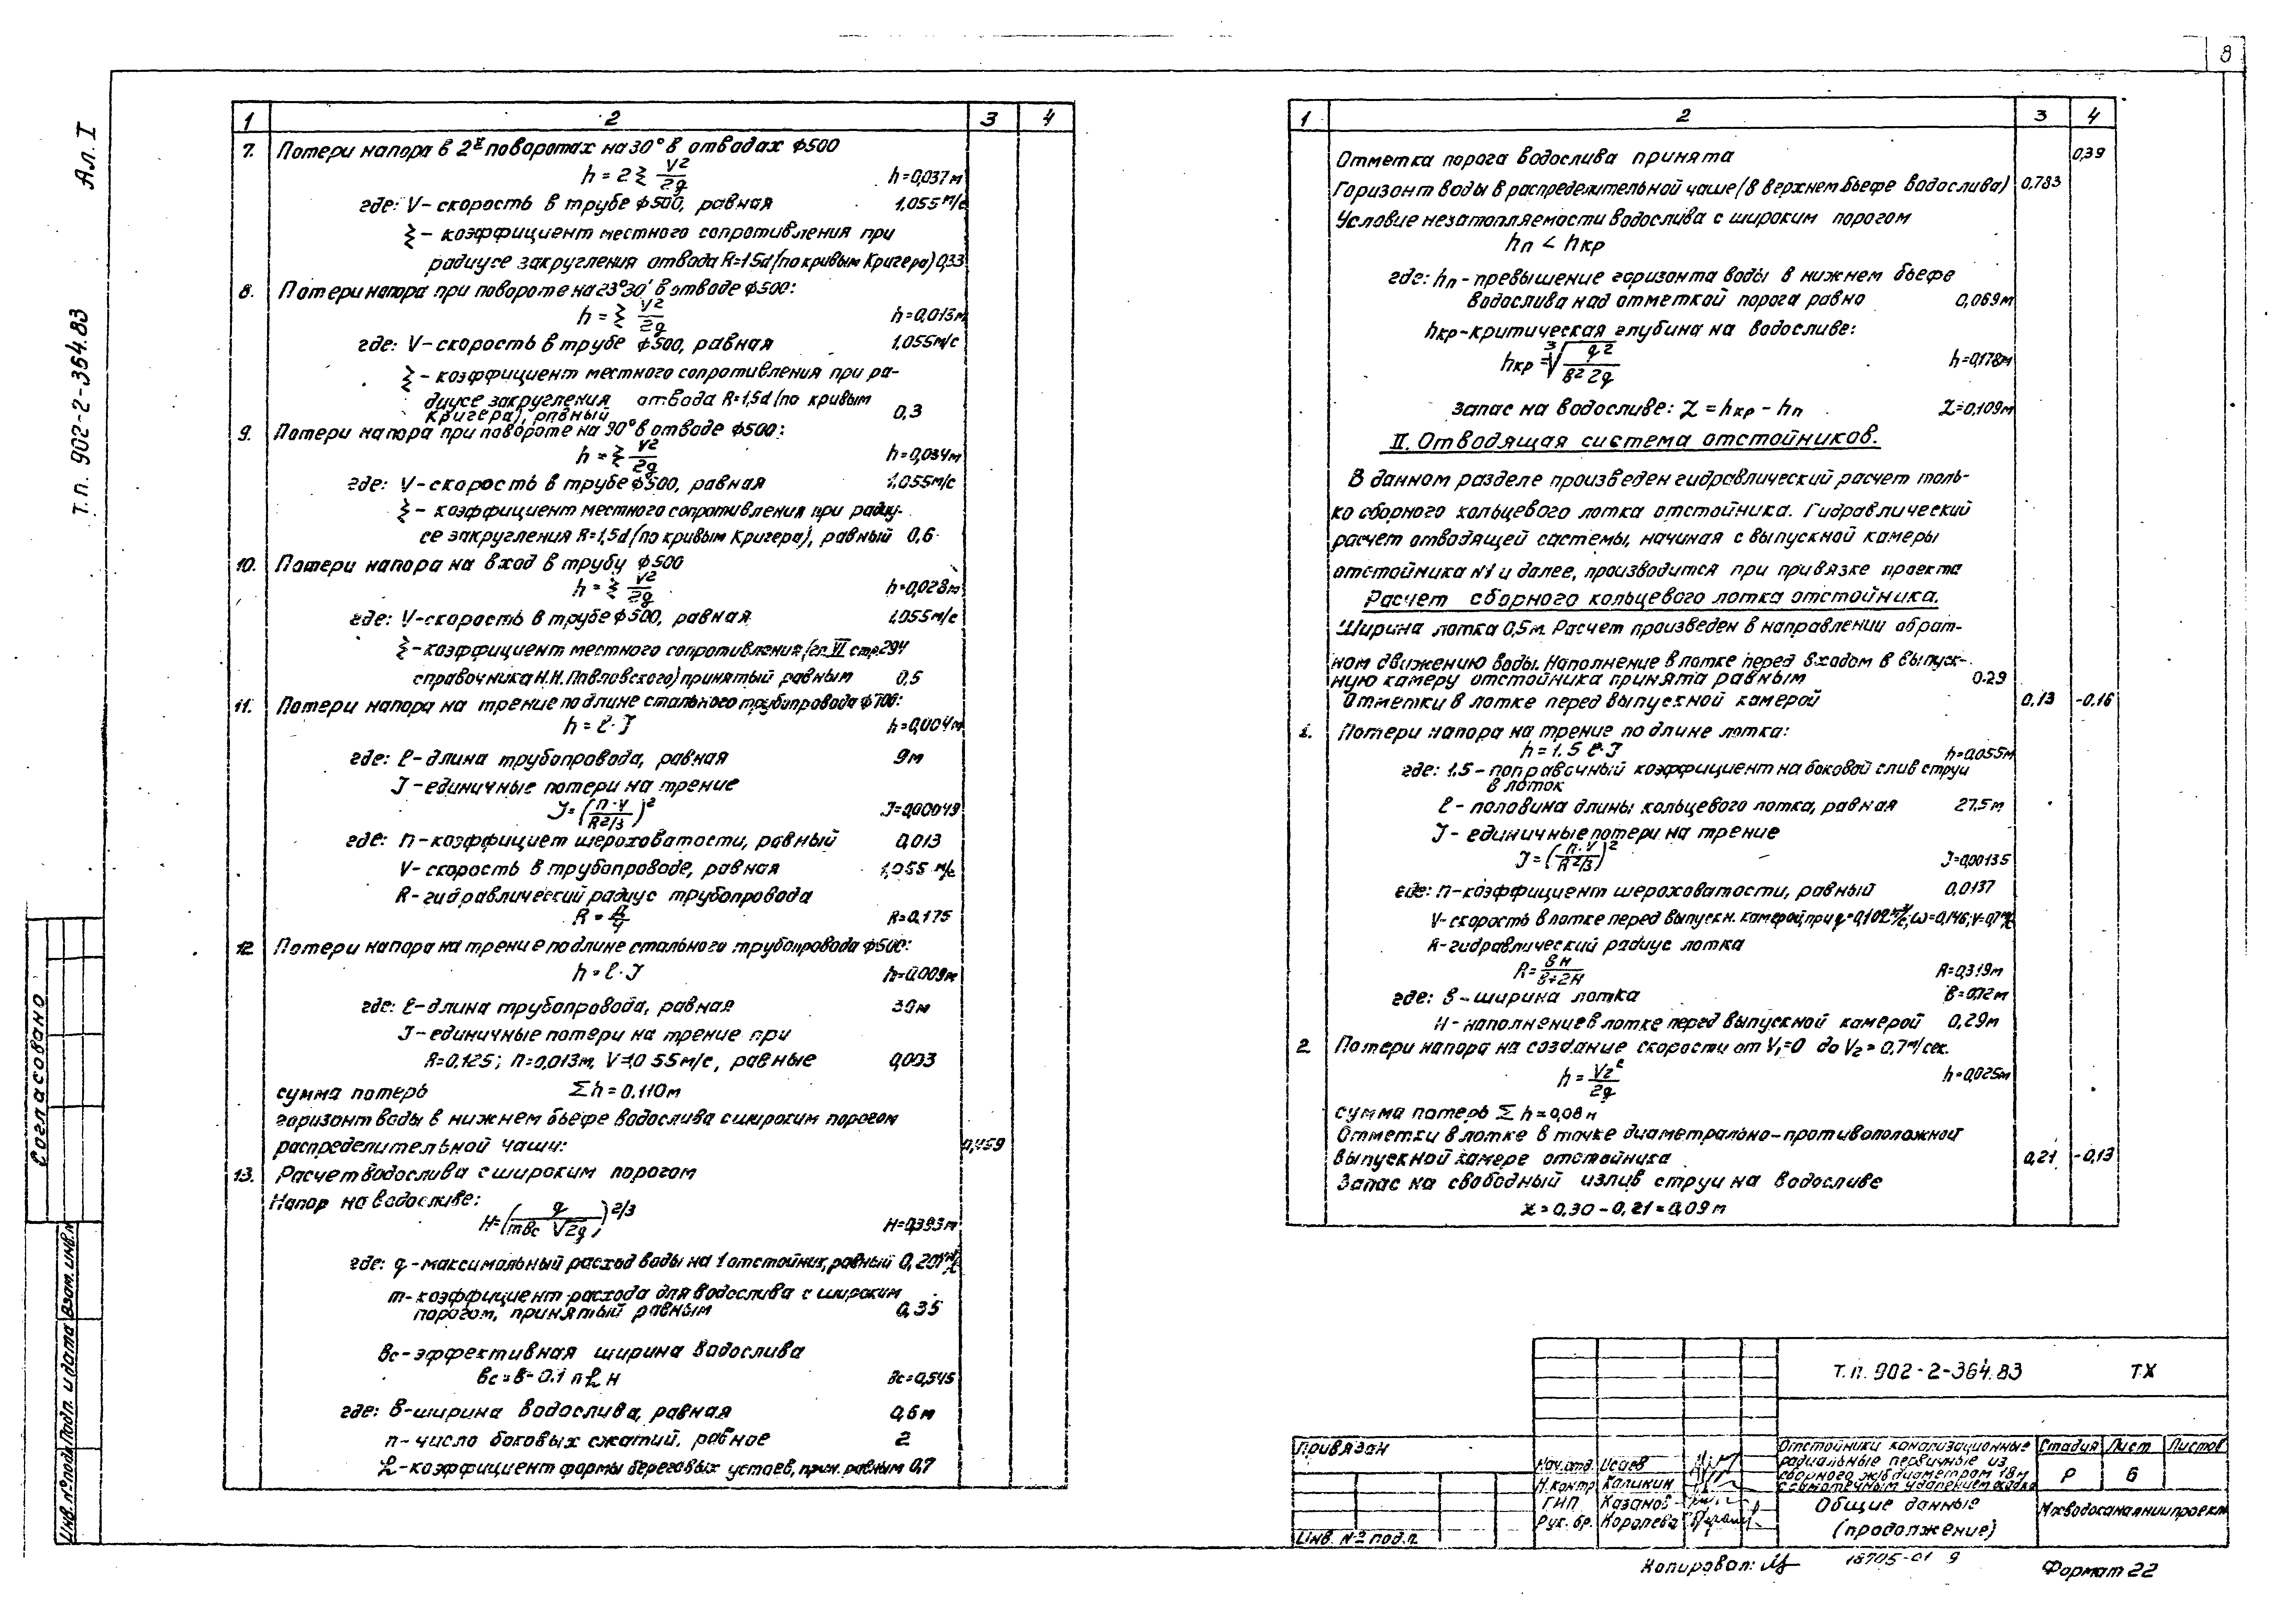 8
Ал. I
Т.П. 902-2-364.83
1 2 3 4
7. Потери напора в 2х поворотах на 30° в отводах ф500
h = 2ξ V2/2g h=0,037м
где: V-скорость в трубе ф500, равная 1,055 м/с
ξ - коэффициент местного сопротивления при
радиусе закругления отвода R=1,5d (по кривым Кригера) 0,33
8. Потери напора при повороте на 23°30′ в отводе ф500:
h = ξ V2/2g h=0,013м
где: V-скорость в трубе ф500, равная 1,055м/с
ξ - коэффициент местного сопротивления при ра-
диусе закругления отвода R=1,5d (по кривым
Кригера), равный 0,3
9. Потери напора при повороте на 90° в отводе ф500:
h = ξ V2/2g h=0,034м
где: V-скорость в трубе ф500, равная 1,055м/с
ξ - коэффициент местного сопротивления при радиу-
се закругления R=1,5d (по кривым Кригера), равный 0,6
10. Потери напора на вход в трубу ф500
h = ξ V2/2g h=0,028м
где: V-скорость в трубе ф500, равная 1,055м/с
ξ-коэффициент местного сопротивления (гл. VI стр.294
справочника Н.Н. Павловского) принятый равным 0,5
11. Потери напора на трение по длине стального трубопровода ф700:
h = ℓ·J h=0,004м
где: ℓ-длина трубопровода, равная 9м
J-единичные потери на трение
J=(n·v/R2/3)2 J=0,00049
где: n-коэффициет шероховатости, равный 0,013
V-скорость в трубопроводе, равная 1,055 м/с
R-гидравлический радиус трубопровода
R = d/4 R=0,175
12. Потери напора на трение по длине стального трубопровода ф500:
h = ℓ·J h=0,009м
где: ℓ-длина трубопровода, равная 39м
J-единичные потери на трение при
R=0,125; n=0,013м, V=1,055м/с, равные 0,003
сумма потерь Σh=0,110м
горизонт воды в нижнем бьефе водослива с широким порогом
распределительной чаши: 0,459
13. Расчет водослива с широким порогом
Напор на водосливе:
H=(q/mвc √2g)2/3 H=0,393м
где: q-максимальный расход воды на 1 отстойник, равный 0,201м3/с
m-коэффициент расхода для водослива с широким
порогом, принятый равным 0,35
вс-эффективная ширина водослива
вс=в-0.1 n ξ H вс=0,545
где: в-ширина водослива, равная 0,6м
n-число боковых сжатий, равное 2
ξ-коэффициент формы береговых устоев, прин. равным 0,7
1 2 3 4
Отметка порога водослива принята 0,39
Горизонт воды в распределительной чаше (в верхнем бьефе водослива) 0,783
Условие незатопляемости водослива с широким порогом
hп < hкр
где: hп-превышение горизонта воды в нижнем бьефе
водослива над отметкой порога равно 0,069м
hкр-критическая глубина на водосливе:
hкр=3√q2/в2 2g h=0,178м
запас на водосливе: Z=hкр-hп Z=0,109м
II. Отводящая система отстойников.
В данном разделе произведен гидравлический расчет толь-
ко сборного кольцевого лотка отстойника. Гидравлический
расчет отводящей системы, начиная с выпускной камеры
отстойника №1 и далее, производится при привязке проекта
Расчет сборного кольцевого лотка отстойника.
Ширина лотка 0,5м. Расчет произведен в направлении обрат-
ном движению воды. Наполнение в лотке перед входом в выпуск-
ную камеру отстойника принята равным 0.29
Отметки в лотке перед выпускной камерой 0,13 -0.16
1. Потери напора на трение по длине лотка:
h=1.5 ℓ·J h=0,055м
где: 1.5-поправочный коэффициент на боковой слив струи
в лоток
ℓ-половина длины кольцевого лотка, равная 27.5м
J-единичные потери на трение
J=(n·V/R2/3)2 J=0,00135
где: n-коэффициент шероховатости, равный 0,0137
V-скорость в лотке перед выпускн. камерой при q=0,102м3/с, ω=0,146; V=0,7м/с
R-гидравлический радиус лотка
R=вH/в+2H R=0,319м
где: в-ширина лотка в=0,72м
H-наполнение в лотке перед выпускной камерой 0,29м
2. Потери напора на создание скорости от V1=0 до V2=0,7м/сек.
h=V22/2g h=0,025м
сумма потерь Σh=0,08м
Отметки в лотке в точке диаметрально-противоположной
выпускной камере отстойника 0,21 -0,13
Запас на свободный излив струи на водосливе
z=0,30-0,21=0,09м
Согласовано
Инв. № подл. Подп. и дата Взам. инв. №
Привязан
Инв. № подл.
Нач. отд. Исаев
Н. контр. Каликин
ГИП Казанов
Рук. бр. Королева
Т.П. 902-2-364.83 ТХ
Отстойники канализационные
радиальные первичные из
сборного ж/б диаметром 18м
с самотечным удалением осадка
Стадия Лист Листов
Р 6
Общие данные
(продолжение)
Мосводоканалниипроект
Копировал:
18705-01 9
Формат 22